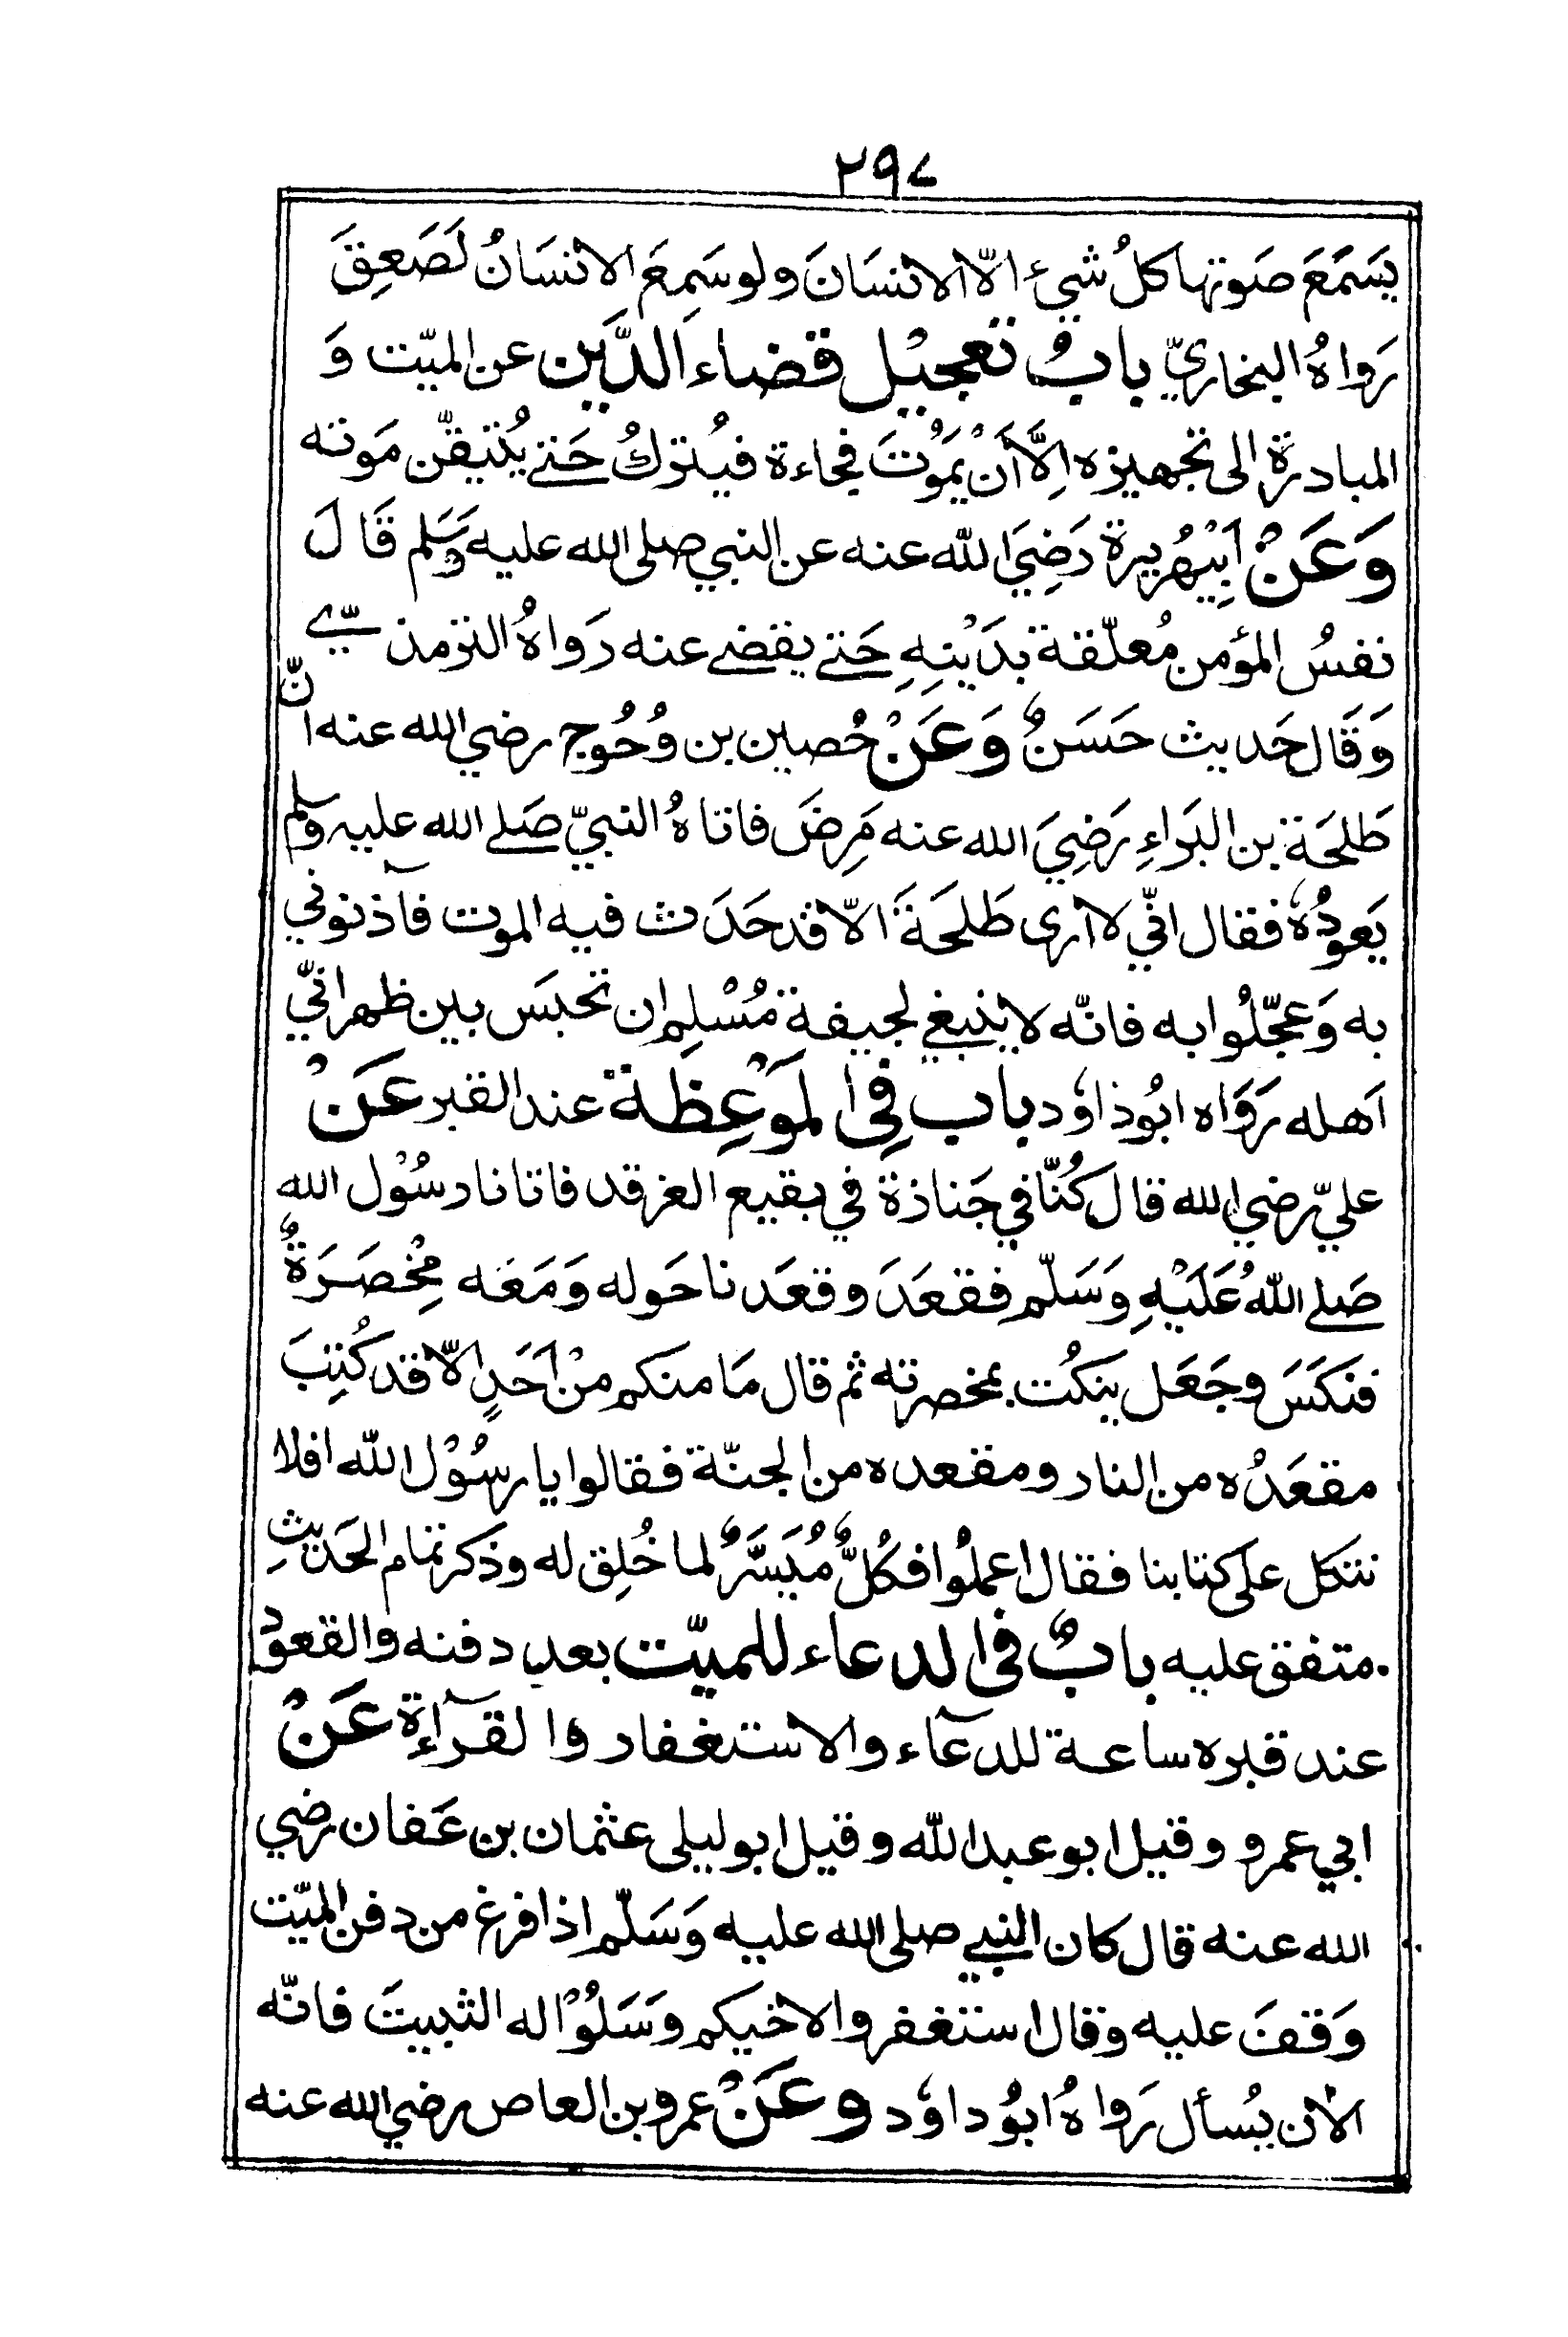 ٢٩٧
يَسمَعَ صَوتها كلُ شيءٍ الّا الانسَانَ ولو سَمِعَ الانسَانُ لَصَعِقَ
رَواهُ البخاريّ بابُ تعجيْل قضاء الدَّين عن الميّت وَ
المبادرة الى تجهيزه اِلَّا أَنْ يَمُوْتَ فجاءة فيُتركُ حَتى يُتيقّن مَوته
وَعَنْ اَبِيْهُريرة رَضِيَ الله عنه عن النبي صلى الله عليه وَسَلم قَالَ
نفسُ المؤمن مُعلّقة بدَيْنِهِ حَتى يقضى عنه رَواهُ الترمذيّ
وَقَال حَديث حَسَنٌ وَعَنْ حُصين بن وُحُوح رضي الله عنه انّ
طَلحَة بن البَراءِ رَضِيَ الله عنه مَرِضَ فاتاهُ النبيّ صَلى الله عليه وسلم
يَعودُهُ فقال انّي لا أرى طَلحَةَ الّا قد حَدَث فيه الموت فآذنوني
به وَعجّلُوا به فانّه لا ينبغي لجيفة مُسْلِم ان تحبَس بين ظهرانّي
اَهله رَوَاه ابُو ذاوُد باب فِي المَوْعِظة عند القبر عَنْ
عليّ رضي الله قال كُنّا في جَنازة في بقيع الغرقد فاتانا رسُوْل الله
صَلى اللهُ عَلَيْهِ وَسَلّم فقعَدَ وقعَدنا حَوله وَمَعَه مِخْصَرَةٌ
فنَكَسَ وجَعَل ينكُت بمخصرته ثم قال مَا منكم منْ اَحَدٍ الّا قد كُتِبَ
مقعَدُه من النار ومقعده من الجنّة فقالوا يا رسُوْل الله افلا
نتكل على كتابنا فقال اعملُوا فكُلٌّ مُيَسَّرٌ لما خُلِق له وذكر تمام الحَديثِ
متفق عليه بابٌ في الدعاء للميّت بعد دفنه والقعود
عند قبره ساعة للدعآء والاستغفار والقرآءة عَنْ
ابي عمرو وقيل ابو عبد الله وقيل ابو ليلى عثمان بن عَفان رضي
الله عنه قال كان النبي صلى الله عليه وَسَلّم اذا فرغ من دفن الميّت
وَقفَ عليه وقال استغفروا لاخيكم وَسَلُوْا له التثبيتَ فانّه
الآن يُسأل رَواهُ ابُو داوُد وعَنْ عمرو بن العاص رضي الله عنه